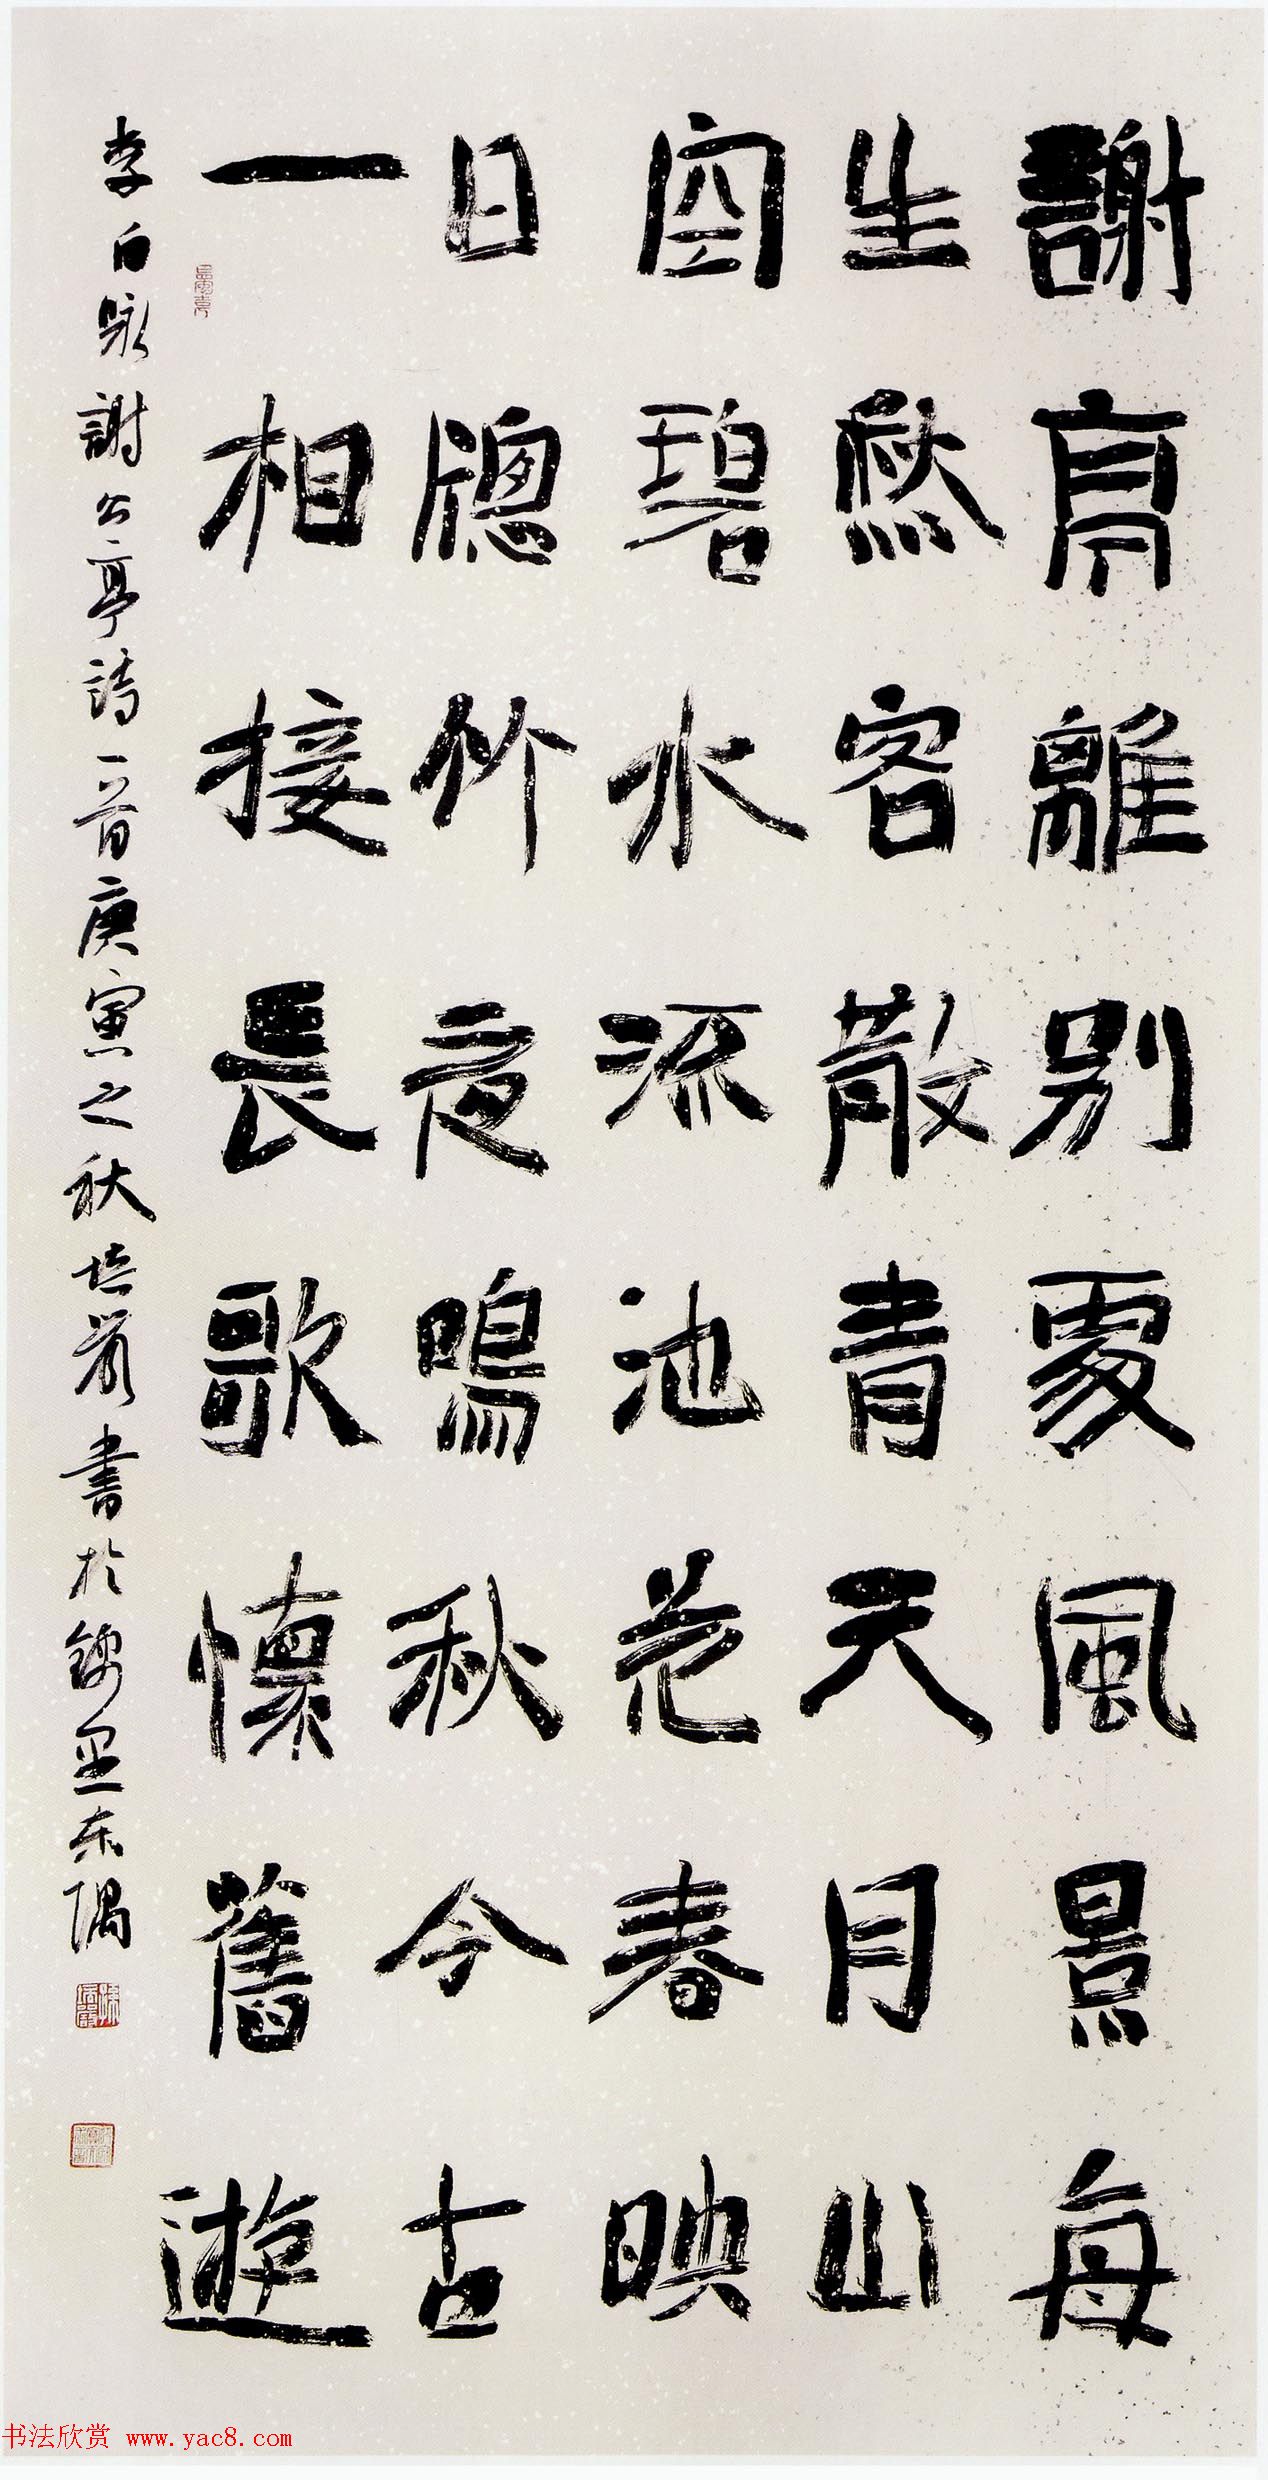 謝亭離別處風景每
生愁客散青天月山
空碧水流池花春映
日牕竹夜鳴秋今古
一相接長歌懷舊遊
李白咏謝公亭詩一首庚寅之秋培嚴書於錦里东隅
书法欣赏 www.yac8.com